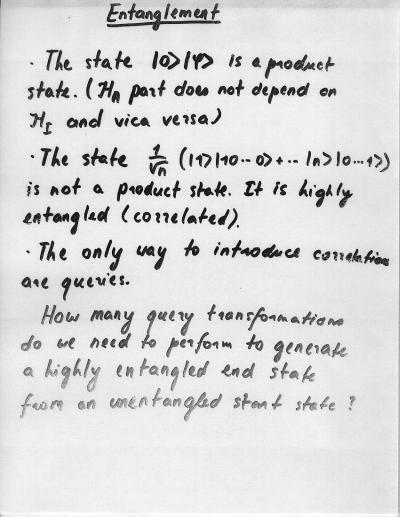 Entanglement
· The state |0>|Ψ> is a product
state. (H_A part does not depend on
H_I and vica versa)
· The state 1/√n (|1>|10··0>+··|n>|0···1>)
is not a product state. It is highly
entangled (correlated).
· The only way to introduce correlations
are queries.
How many query transformations
do we need to perform to generate
a highly entangled end state
from an unentangled start state?